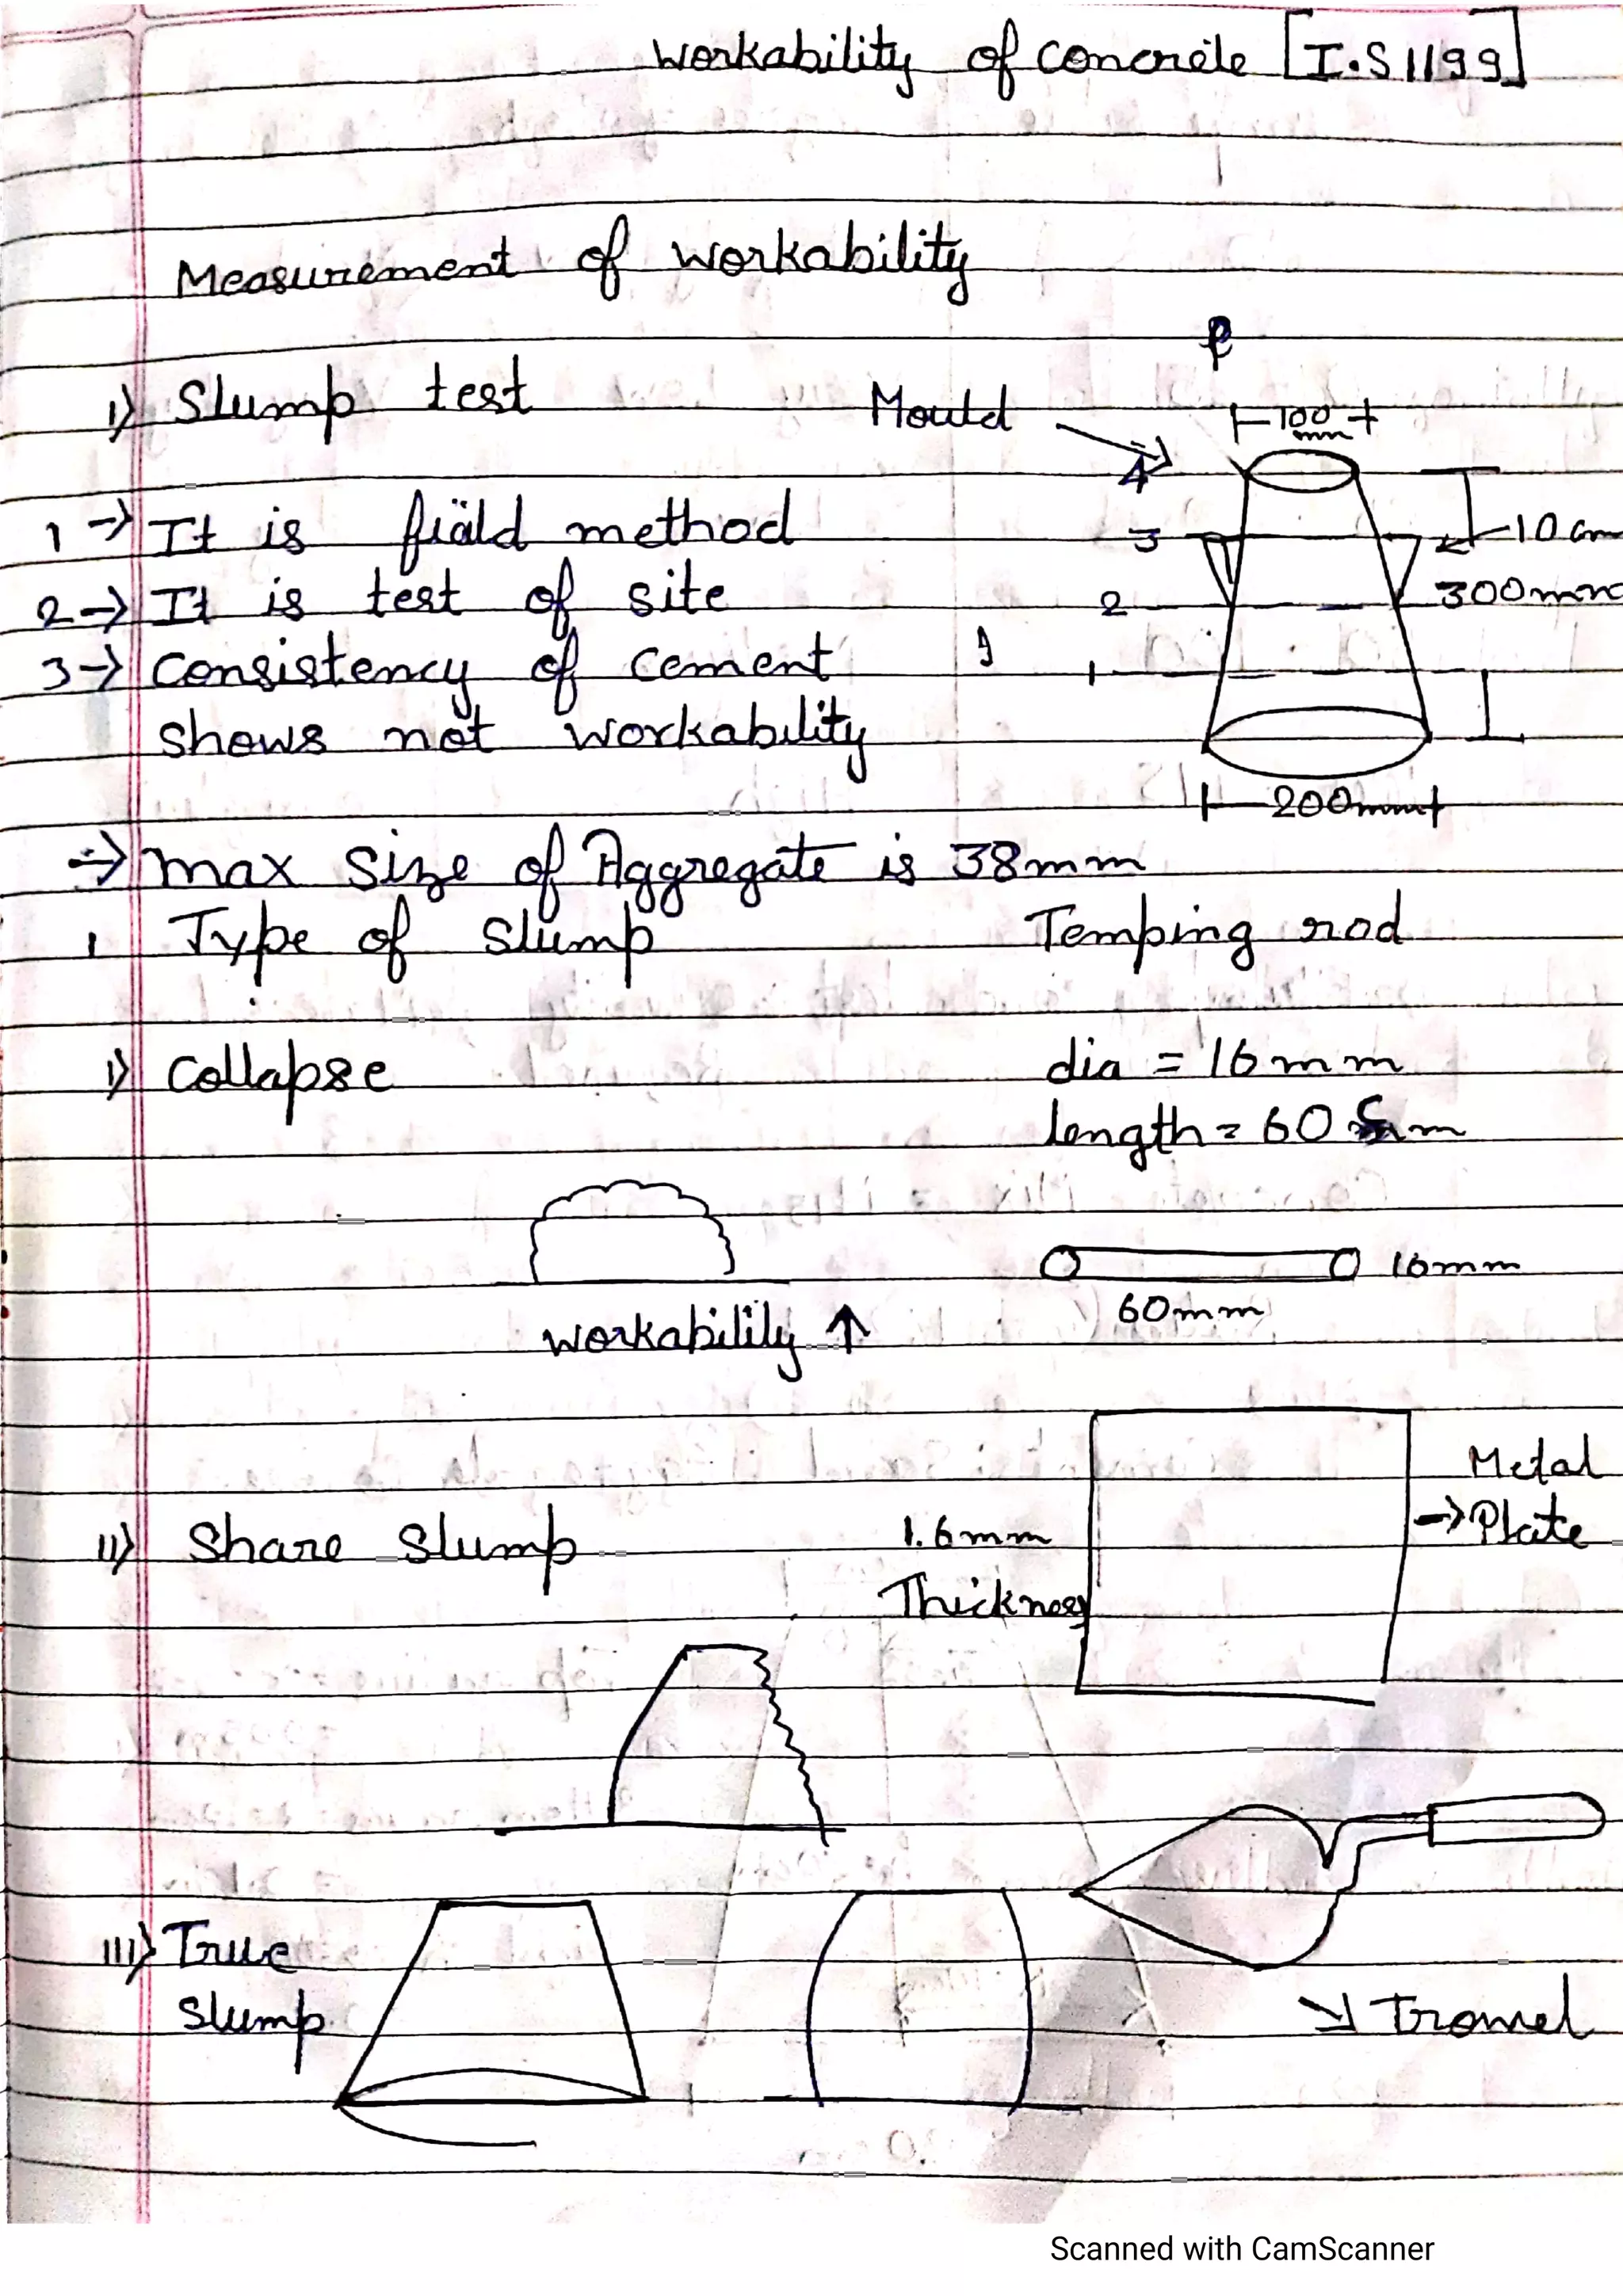 Workability of concrete [I.S 1199]
Measurement of workability
1) Slump test
Mould
100 mm
4
3
2
1
10 cm
300mm
200mm
1 → It is fiäld method
2 → It is test of site
3 → Consistency of cement
shows not workability
→ max size of Aggregate is 38mm
1 Type of slump
Temping rod
1) Collapse
dia = 16mm
length = 60 cm
16mm
60mm
workability ↑
Metal
→ Plate
1.6mm
Thickness
11) Share Slump
111) True
slump
↘ Tromel
Scanned with CamScanner